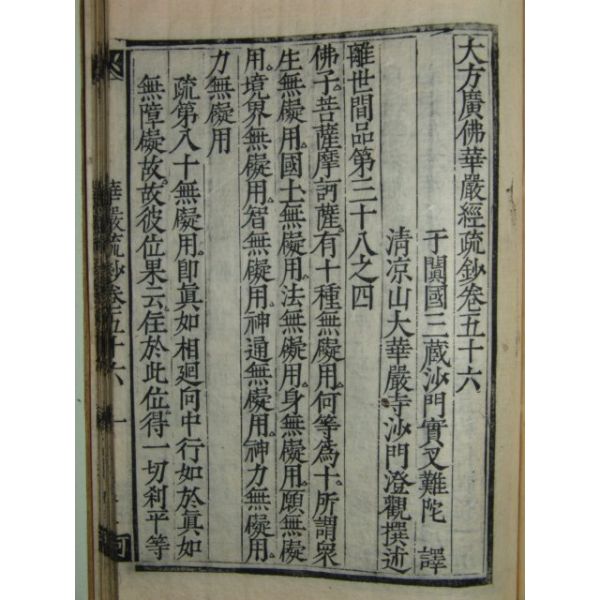 大方廣佛華嚴經疏鈔卷五十六
于闐國三藏沙門實叉難陀 譯
清凉山大華嚴寺沙門澄觀撰述
離世間品第三十八之四
佛子。菩薩摩訶薩。有十種無礙用。何等爲十。所謂衆
生無礙用。國土無礙用。法無礙用。身無礙用。願無礙
用。境界無礙用。智無礙用。神通無礙用。神力無礙用。
力無礙用
疏第八十無礙用。即眞如相廻向中行如於眞如
無障礙故。故彼位果云。住於此位得一切刹平等
華嚴疏鈔卷五十六 一